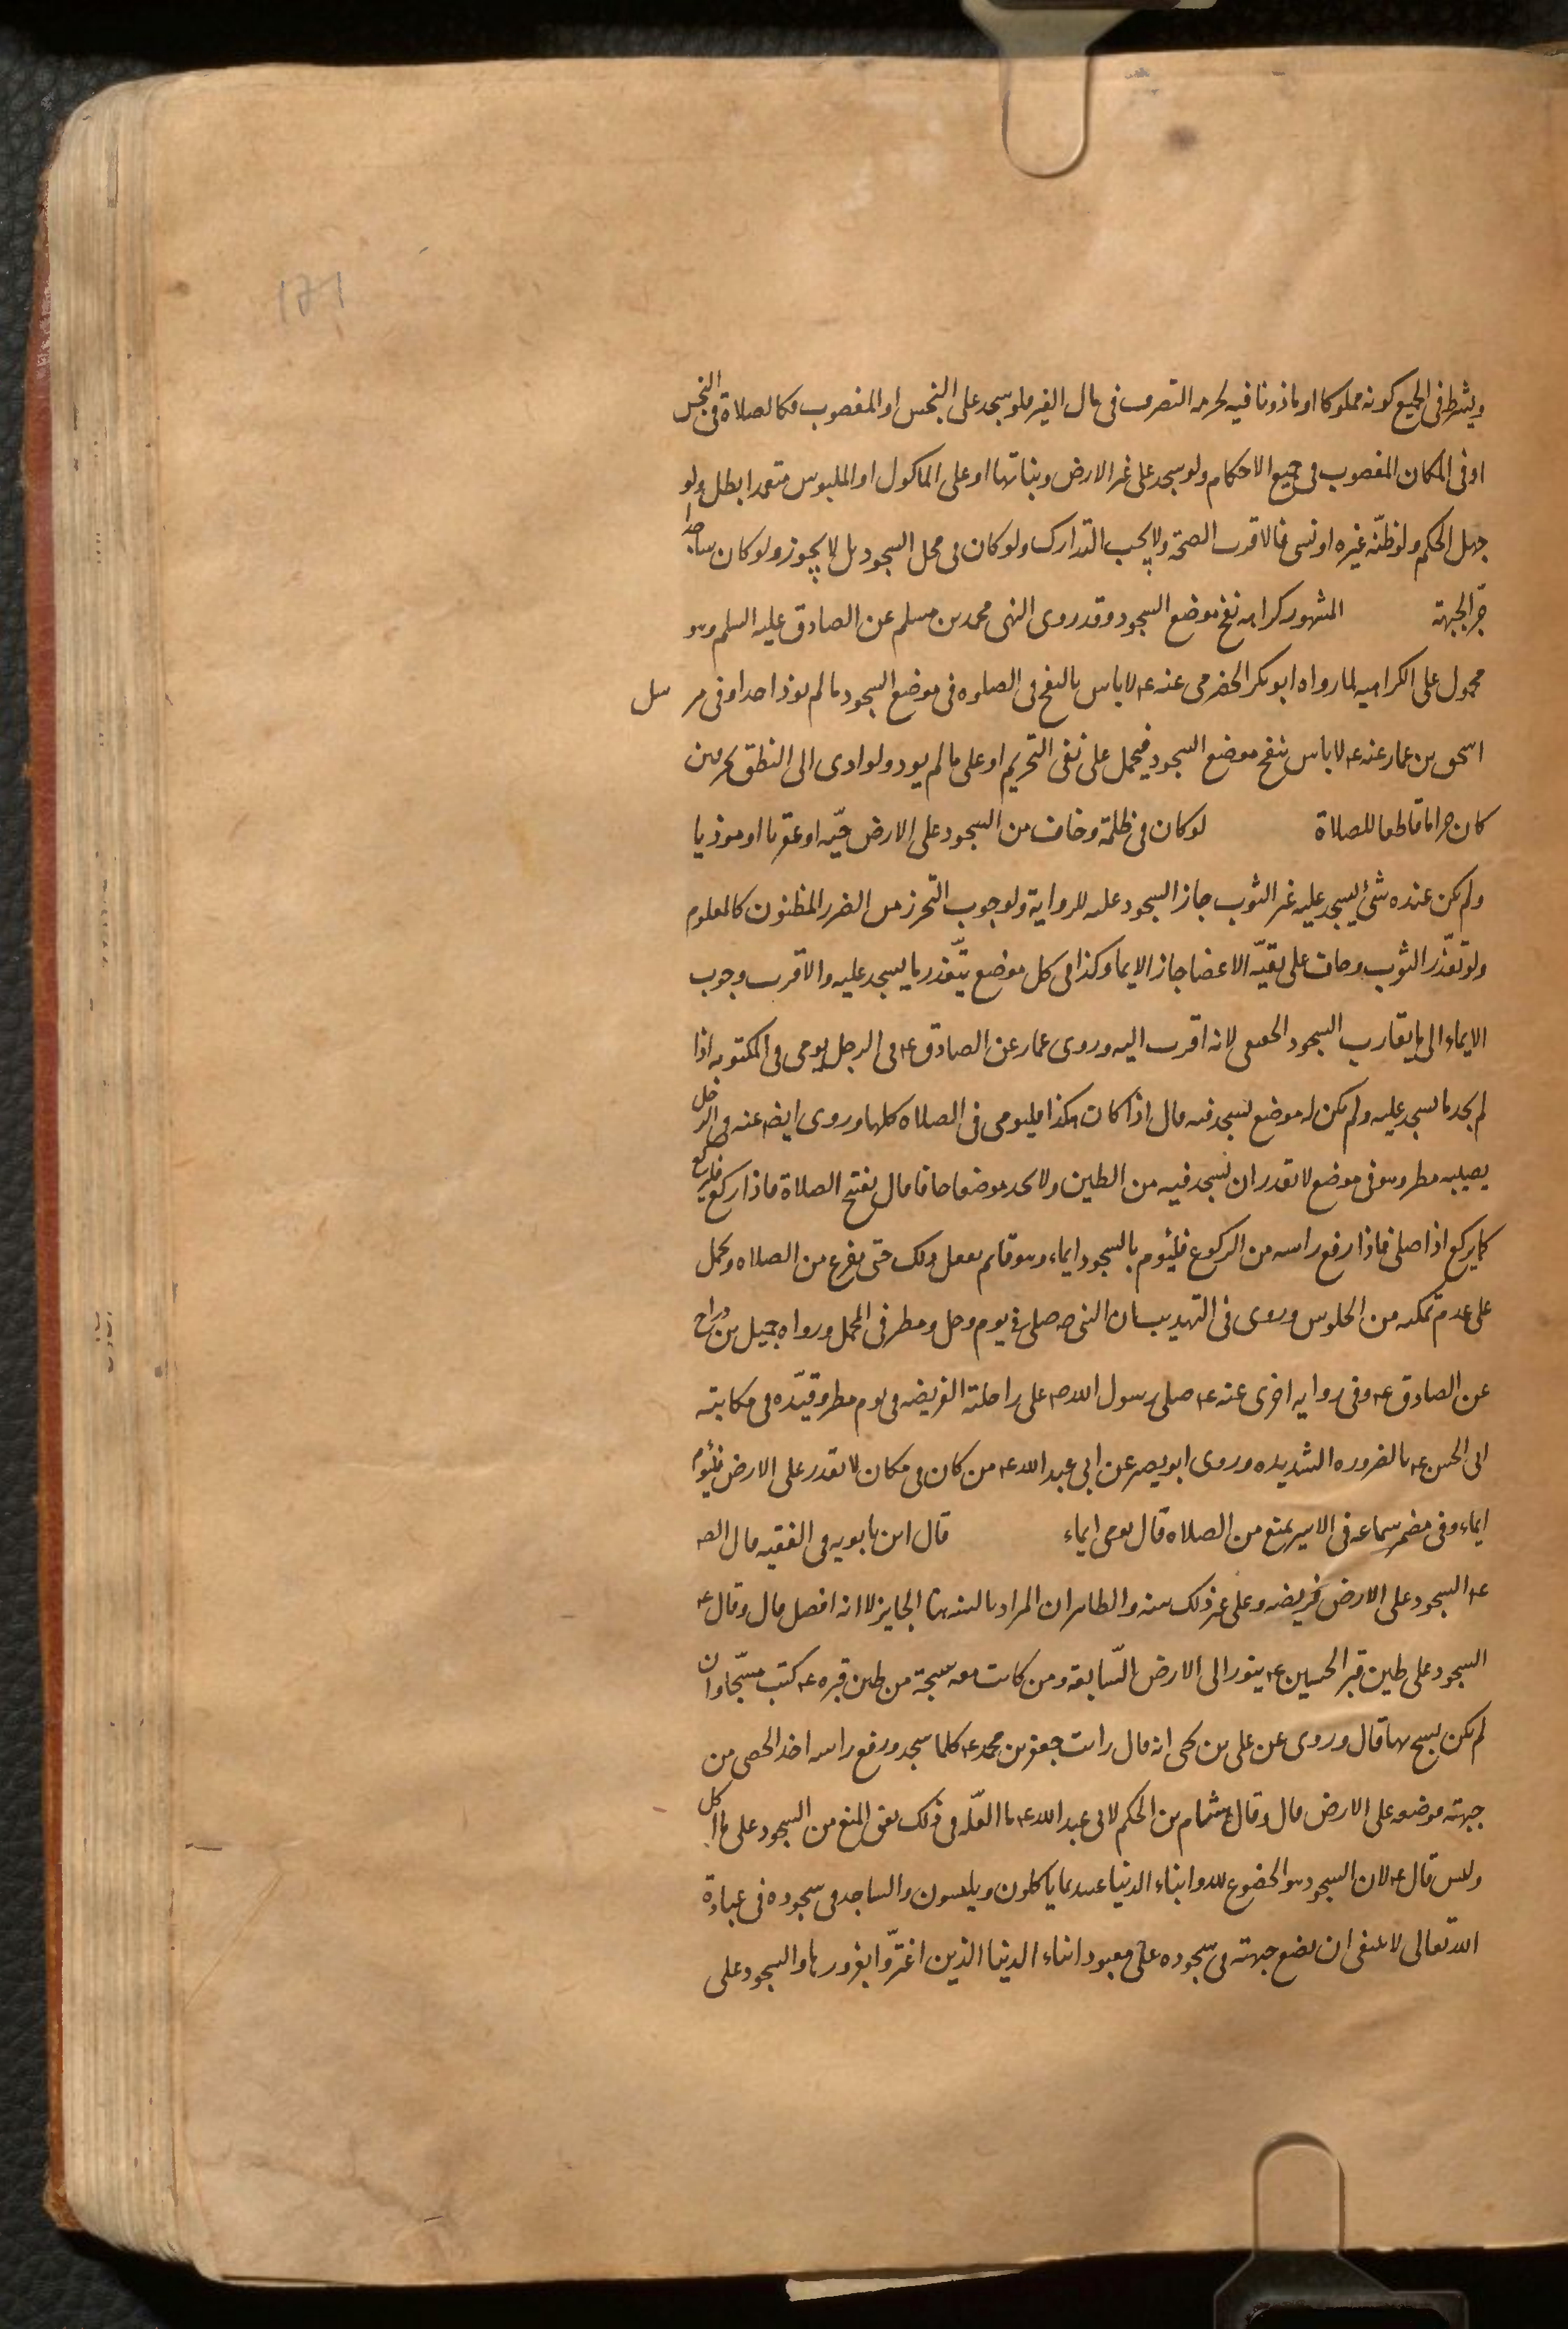 171
ويشترط فى الجميع كونه مملوكا او ماذونا فيه لحرمه التصرف فى مال الغير فلو سجد على النجس او المغصوب فكالصلاة فى النجس
او فى المكان المغصوب فى جميع الاحكام ولو سجد على غير الارض ونباتها او على الماكول او الملبوس متعمدا بطل ولو
جهل الحكم ولو ظنّه غيره او نسى فالاقرب الصحة ولا يجب التدارك ولو كان فى محل السجود بل لا يجوز ولو كان ساجدا
جرّ الجبهة المشهور كراهه نفخ موضع السجود وقد روى النهى محمد بن مسلم عن الصادق عليه السلم وهو
محمول على الكراهيه لما رواه ابو بكر الحضرمى عنه ع لا باس بالنفخ فى الصلوه فى موضع السجود ما لم يوذ احدا وفى مرسل
اسحق بن عمار عنه ع لا باس بنفخ موضع السجود فيحمل على نفى التحريم او على ما لم يوذ ولو ادى الى النطق بحرفين
كان حراما قاطعا للصلاة لو كان فى ظلمة وخاف من السجود على الارض حيّه او عقربا او موذيا
ولم يكن عنده شئ يسجد عليه غير الثوب جاز السجود عليه للرواية ولوجوب التحرز من الضرر المظنون كالمعلوم
ولو تعذّر الثوب وخاف على بقيّه الاعضا جاز الايما وكذا فى كل موضع يتعّذر ما يسجد عليه والاقرب وجوب
الايماء الى ما يقارب السجود الحقيقى لانه اقرب اليه وروى عمار عن الصادق ع فى الرجل يومى فى المكتوبه اذا
لم يجد ما يسجد عليه ولم يكن له موضع يسجد فيه قال اذا كان هكذا فليومى فى الصلاه كلها وروى ايضا عنه فى الرجل
يصيبه مطر وهو فى موضع لا يقدر ان يسجد فيه من الطين ولا يجد موضعا جافا قال يفتح الصلاة فاذا ركع فليركع
كما يركع اذا صلى فاذا رفع راسه من الركوع فليؤم بالسجود ايماء وهو قائم يفعل ذلك حتى يفرغ من الصلاه ويحمل
على عدم تمكنه من الجلوس وروى فى التهذيب ان النبى ص صلى فى يوم وحل ومطر فى المحمل ورواه جميل بن دراج
عن الصادق ع وفى روايه اخرى عنه ع صلى رسول الله ص على راحلته الفريضه فى يوم مطر وقيّده فى مكاتبته
ابى الحسن ع بالضروره الشديده وروى ابو بصير عن ابى عبد الله ع من كان فى مكان لا يقدر على الارض فليؤم
ايماء وفى مضمر سماعه فى الاسير يمنع من الصلاه قال يومى ايماء قال ابن بابويه فى الفقيه قال الص
ع السجود على الارض فريضه وعلى غير ذلك سنه والظاهر ان المراد بالسنه هنا الجايز لا انه افضل قال وقال ع
السجود على طين قبر الحسين ع ينور الى الارض السّابعه ومن كانت معه سبحة من طين قبره ع كتب مسبّحا وان
لم يكن يسبح بها قال وروى عن على بن يحيى انه قال رايت جعفر بن محمد ع كلما سجد ورفع راسه اخذ الحصى من
جبهته فوضعه على الارض قال وقال هشام بن الحكم لابى عبد الله ع ما العلّه فى ذلك يعنى المنع من السجود على ما اكل
ولبس قال ع لان السجود هو الخضوع لله وابناء الدنيا عبيد ما ياكلون ويلبسون والساجد فى سجوده فى عبادة
الله تعالى لا ينبغى ان يضع جبهته فى سجوده على معبود ابناء الدنيا الذين اغترّوا بغرورها والسجود على